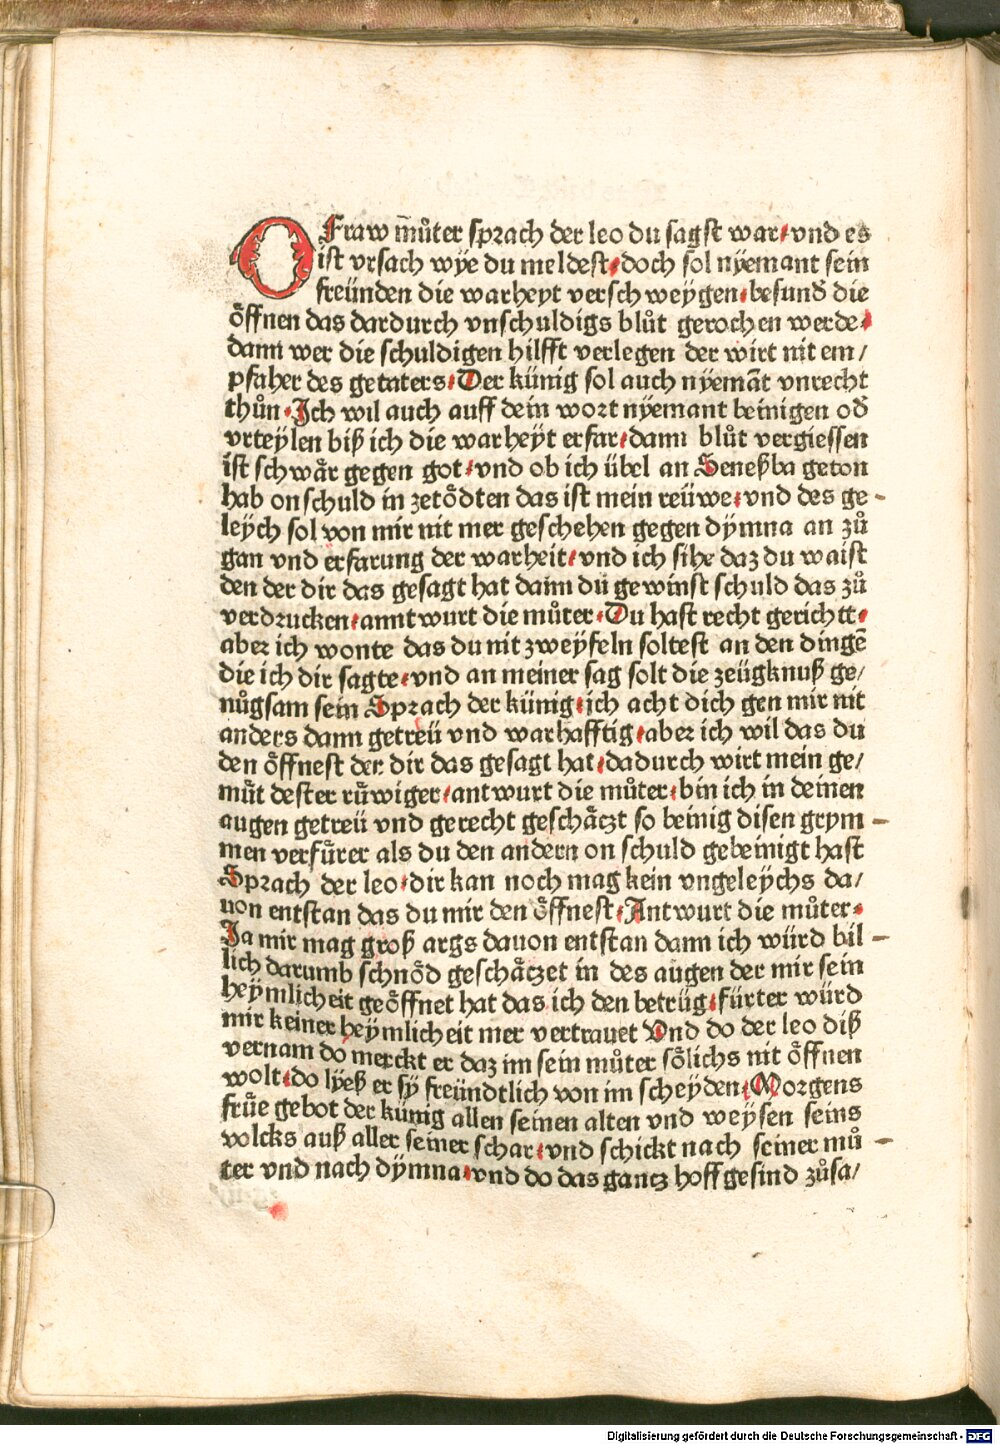 O Fraw m̄uͦter sprach der leo du sagst war/ vnd es
ist vrsach wÿe du meldest/ doch sol nÿemant sein
freünden die warheyt verschweÿgen/ besund̄ die
oͤffnen das dardurch vnschuldigs bluͦt gerochen werde/
dann wer die schuldigen hilfft verlegen der wirt nit em/
pfaher des getaters/ Der künig sol auch nÿemāt vnrecht
thuͦn/ Ich wil auch auff dein wort nÿemant beinigen od̄
vrteÿlen biß ich die warheÿt erfar/ dann bluͦt vergiessen
ist schwaͤr gegen got/ vnd ob ich übel an Seneßba geton
hab onschuld in zetoͤdten das ist mein reüwe/ vnd des ge-
leÿch sol von mir nit mer geschehen gegen dÿmna an zuͦ
gan vnd erfarung der warheit/ vnd ich sihe daz du waist
den der dir das gesagt hat dann du gewinst schuld das zuͦ
verdrucken/ anntwurt die muͦter/ Du hast recht gerichtt/
aber ich wonte das du nit zweÿfeln soltest an den dingē
die ich dir sagte/ vnd an meiner sag solt die zeügknuß ge/
nuͦgsam sein Sprach der künig/ ich acht dich gen mir nit
anders dann getreü vnd warhafftig/ aber ich wil das du
den oͤffnest der dir das gesagt hat/ dadurch wirt mein ge/
muͤt dester ruͤwiger/ antwurt die muͦter/ bin ich in deinen
augen getreü vnd gerecht geschaͤczt so beinig disen grym-
men verfuͤrer als du den andern on schuld gebeinigt hast
Sprach der leo/ dir kan noch mag kein vngeleÿchs da/
uon entstan das du mir den oͤffnest/ Antwurt die muͦter/
Ja mir mag groß args dauon entstan dann ich würd bil-
lich darumb schnoͤd geschaͤczet in des augen der mir sein
heÿmlicheit geoͤffnet hat das ich den betrüg/ fürter würd
mir keiner heÿmlicheit mer vertrauet Vnd do der leo diß
vernam do merckt er daz im sein muͦter soͤlichs nit oͤffnen
wolt/ do lÿeß er sÿ freündtlich von im scheÿden/ Morgens
fruͤe gebot der künig allen seinen alten vnd weÿsen seins
volcks auß aller seiner schar/ vnd schickt nach seiner muͦ-
ter vnd nach dÿmna/ vnd do das gancz hoffgesind zuͦsa/
Digitalisierung gefördert durch die Deutsche Forschungsgemeinschaft - DFG